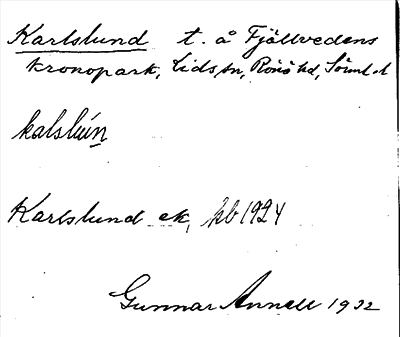 Karlslund t. å Fjällvedens
kronopark, Lids sn, Rönö hd, Söml. l
kalslún
Karlslund ek, hb 1924
Gunnar Annell 1932